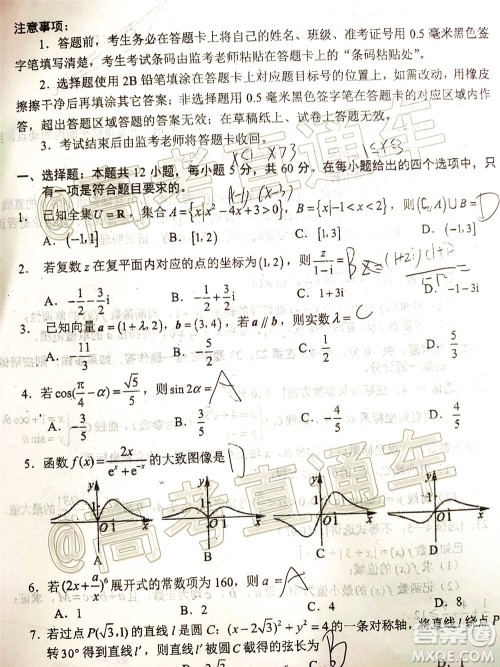 注意事项：
1．答题前，考生务必在答题卡上将自己的姓名、班级、准考证号用 0.5 毫米黑色签
字笔填写清楚，考生考试条码由监考老师粘贴在答题卡上的“条码粘贴处”。
2．选择题使用 2B 铅笔填涂在答题卡上对应题目标号的位置上，如需改动，用橡皮
擦擦干净后再填涂其它答案；非选择题用 0.5 毫米黑色签字笔在答题卡的对应区域内作
答，超出答题区域答题的答案无效；在草稿纸上、试卷上答题无效。
3．考试结束后由监考老师将答题卡收回。
x<1 x>3
1≤x≤3
一、选择题：本题共 12 小题，每小题 5 分，共 60 分。在每小题给出的四个选项中，只
有一项是符合题目要求的。
(x-1)(x-3)
1．已知全集U=R，集合 A={x|x²-4x+3>0}，B={x|-1<x<2}，则(∁ᵤA)∪B= D
A．(-1,1] B．[1,2) C．[1,3] D．(-1,3]
2．若复数 z 在复平面内对应的点的坐标为(1,2)，则 z/(1-i) = B
A．-1/2-3/2 i B．-1/2+3/2 i C．1+3i D．-1-3i
3．已知向量 a=(1+λ,2)，b=(3,4)，若 a∥b，则实数λ= C
A．-11/3 B．-1/3 C．1/2 D．5/3
4．若 cos(π/4-α)=√5/5，则 sin2α= A
A．-3/5 B．3/5 C．-4/5 D．4/5
5．函数 f(x)=2x/(eˣ+e⁻ˣ) 的大致图像是 D
y y y y
1 1 1 1
O 1 x O 1 x O 1 x O 1 x
A B C D
6．若(2x+a/x)⁶展开式的常数项为 160，则 a= A
A．1 B．2 C．4 D．8
7．若过点 P(√3,1)的直线 l 是圆 C：(x-2√3)²+y²=4 的一条对称轴，将直线 l 绕点 P
转 30°得到直线 l′，则直线 l′被圆 C 截得的弦长为 B
@高考直通车
@高考直通车
答案圈
MXQE.COM